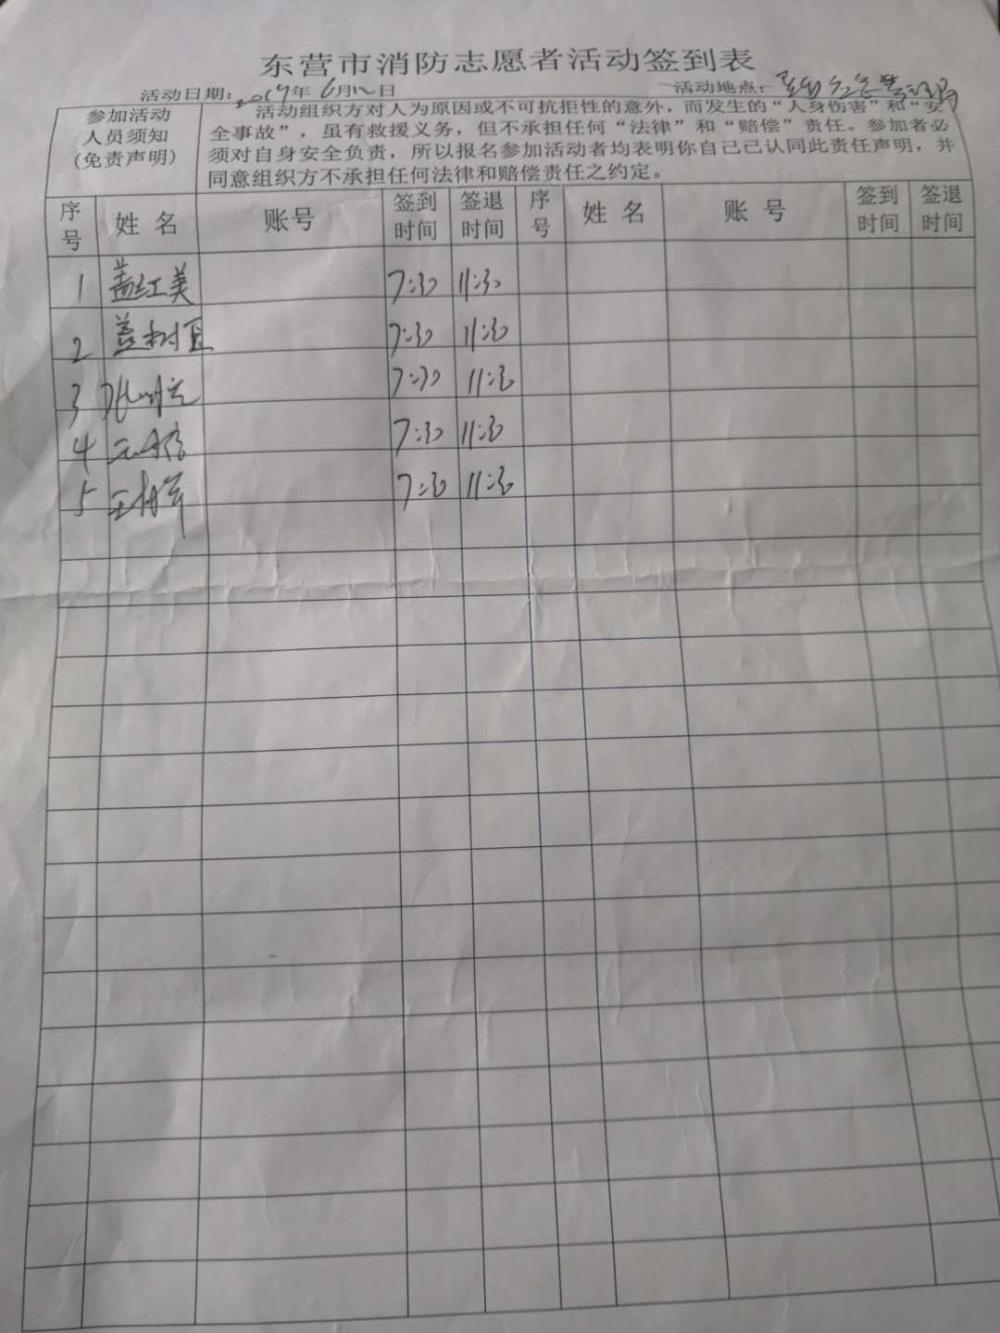 东营市消防志愿者活动签到表
活动日期：2019年6月12日 活动地点：
参加活动
人员须知
(免责声明)
活动组织方对人为原因或不可抗拒性的意外，而发生的“人身伤害”和“安
全事故”，虽有救援义务，但不承担任何“法律”和“赔偿”责任。参加者必
须对自身安全负责，所以报名参加活动者均表明你自己已认同此责任声明，并
同意组织方不承担任何法律和赔偿责任之约定。
序号 姓 名 账号 签到时间 签退时间 序号 姓 名 账 号 签到时间 签退时间
1 盖红美 7:30 11:30
2 盖树 7:30 11:30
3 7:30 11:30
4 7:30 11:30
5 王 军 7:30 11:30